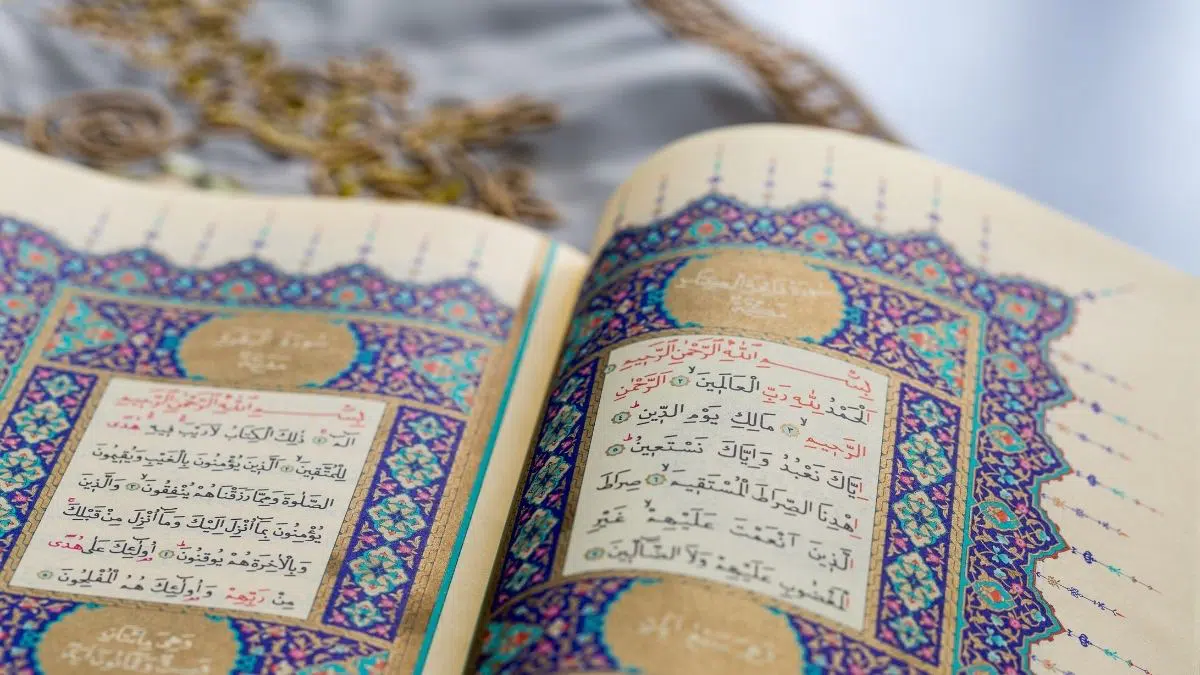 سُورَةُ فَاتِحَةِ الْكِتَابِ
بِسْمِ اللّٰهِ الرَّحْمٰنِ الرَّحِيمِ
اَلْحَمْدُ لِلّٰهِ رَبِّ الْعَالَمِينَۙ ٢ اَلرَّحْمٰنِ
الرَّحِيمِۙ ٣ مَالِكِ يَوْمِ الدِّينِۜ ٤
اِيَّاكَ نَعْبُدُ وَاِيَّاكَ نَسْتَعِينُۜ ٥
اِهْدِنَا الصِّرَاطَ الْمُسْتَقِيمَۙ ٦ صِرَاطَ
الَّذِينَ اَنْعَمْتَ عَلَيْهِمْۙ غَيْرِ
الْمَغْضُوبِ عَلَيْهِمْ وَلَا الضَّالِّينَ ٧
وَهِيَ سَبْعُ اٰيَاتٍ
سُورَةُ الْبَقَرَةِ
بِسْمِ اللّٰهِ الرَّحْمٰنِ الرَّحِيمِ
الٓمٓۚ ١ ذٰلِكَ الْكِتَابُ لَا رَيْبَۚ فِيهِۚ هُدًى
لِلْمُتَّقِينَۙ ٢ اَلَّذِينَ يُؤْمِنُونَ بِالْغَيْبِ وَيُقِيمُونَ
الصَّلٰوةَ وَمِمَّا رَزَقْنَاهُمْ يُنْفِقُونَۙ ٣ وَالَّذِينَ
يُؤْمِنُونَ بِمَٓا اُنْزِلَ اِلَيْكَ وَمَٓا اُنْزِلَ مِنْ قَبْلِكَۚ
وَبِالْاٰخِرَةِ هُمْ يُوقِنُونَۜ ٤ اُو۬لٰٓئِكَ عَلٰى هُدًى
مِنْ رَبِّهِمْ وَاُو۬لٰٓئِكَ هُمُ الْمُفْلِحُونَ ٥